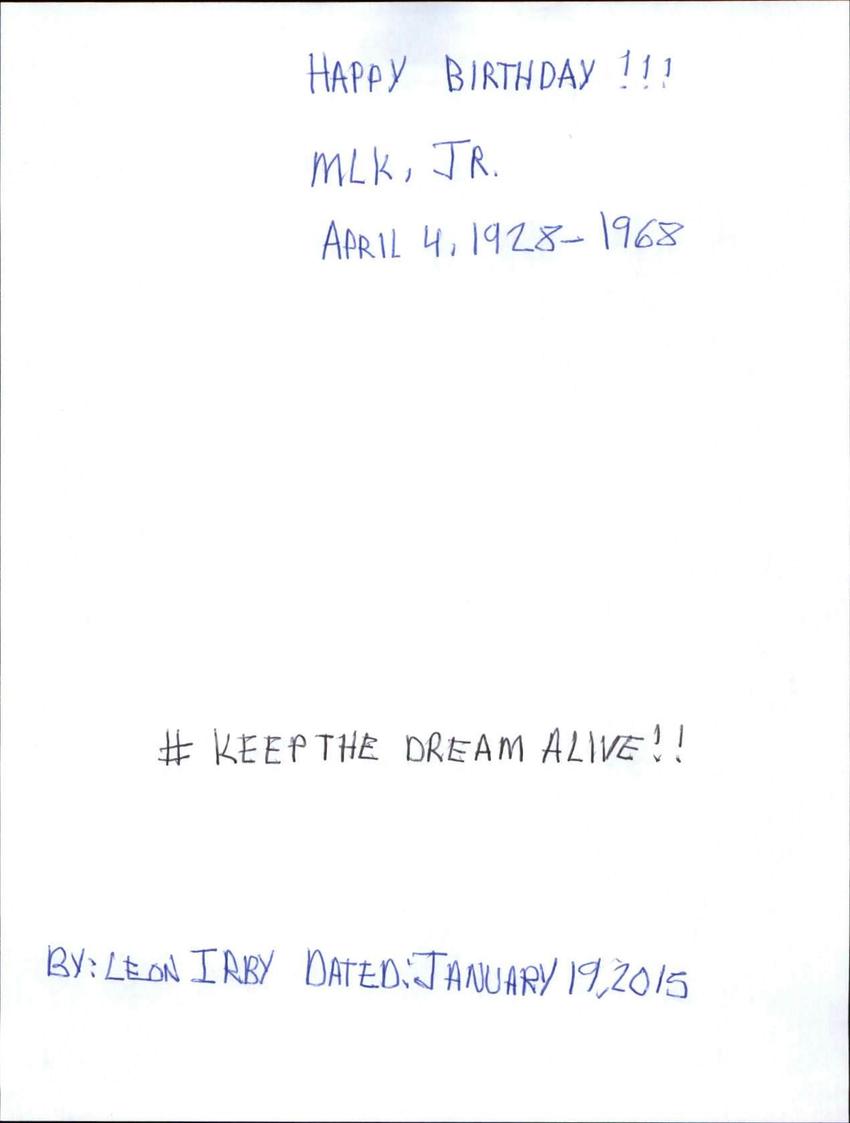 HAPPY BIRTHDAY !!!
MLK, JR.
APRIL 4, 1928 - 1968
# KEEP THE DREAM ALIVE!!
BY: LEON IRBY DATED: JANUARY 19, 2015